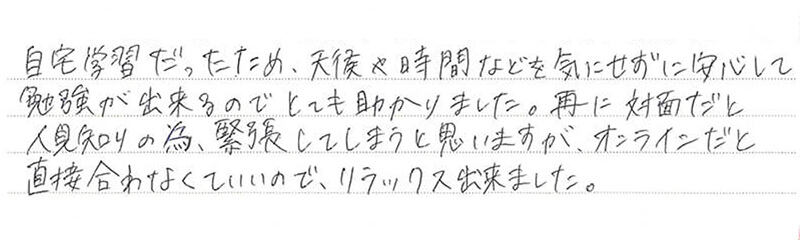 自宅学習だったため、天候や時間などを気にせずに安心して
勉強が出来るのでとても助かりました。再に対面だと
人見知りの為、緊張してしまうと思いますが、オンラインだと
直接合わなくていいので、リラックス出来ました。